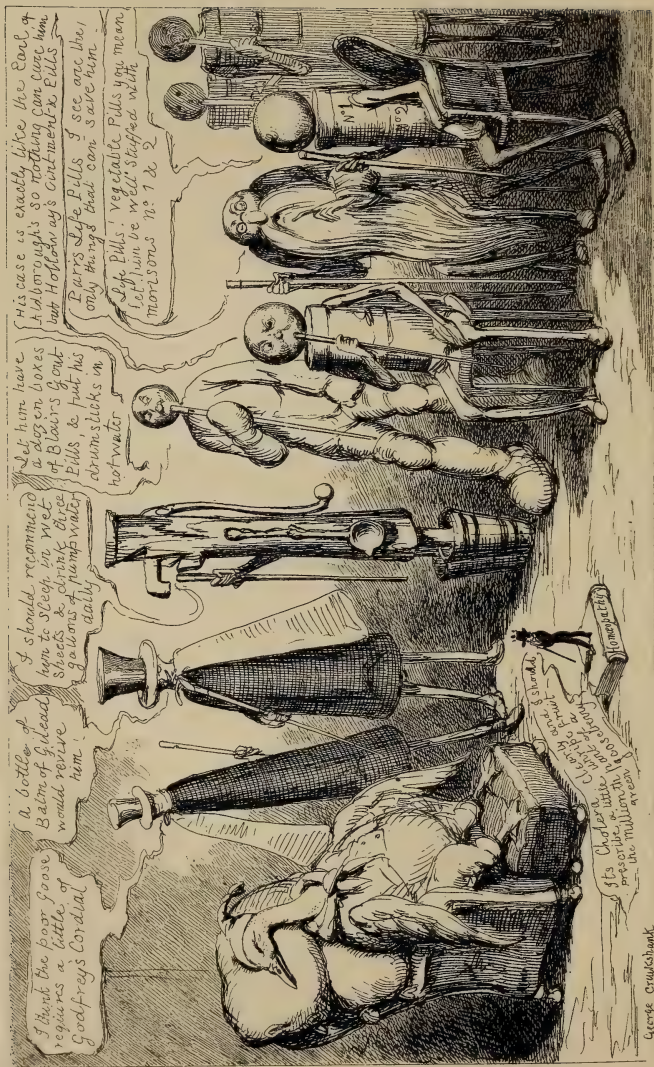 I think the poor Goose
requires a little of
Godfreys Cordial
a bottle of
Balm of Gilead
would revive
him!
I should recommend
him to sleep in wet
sheets & drink three
gallons of pump water
daily
let him have
a dozen boxes
of Blairs Gout
Pills & put his
drumsticks in
hot water
His case is exactly like the Earl of
Aldborough's so nothing can cure him
but Holloway's Ointment & Pills
Parrs Life Pills I see are the
only things that can save him.
Life Pills! vegetable Pills you mean
let him be well stuffed with
morisons No. 1 & 2
No 1
No 2
Its Cholera clearly and I should
prescribe a little
the millionth
Homœopathy
George Cruikshank